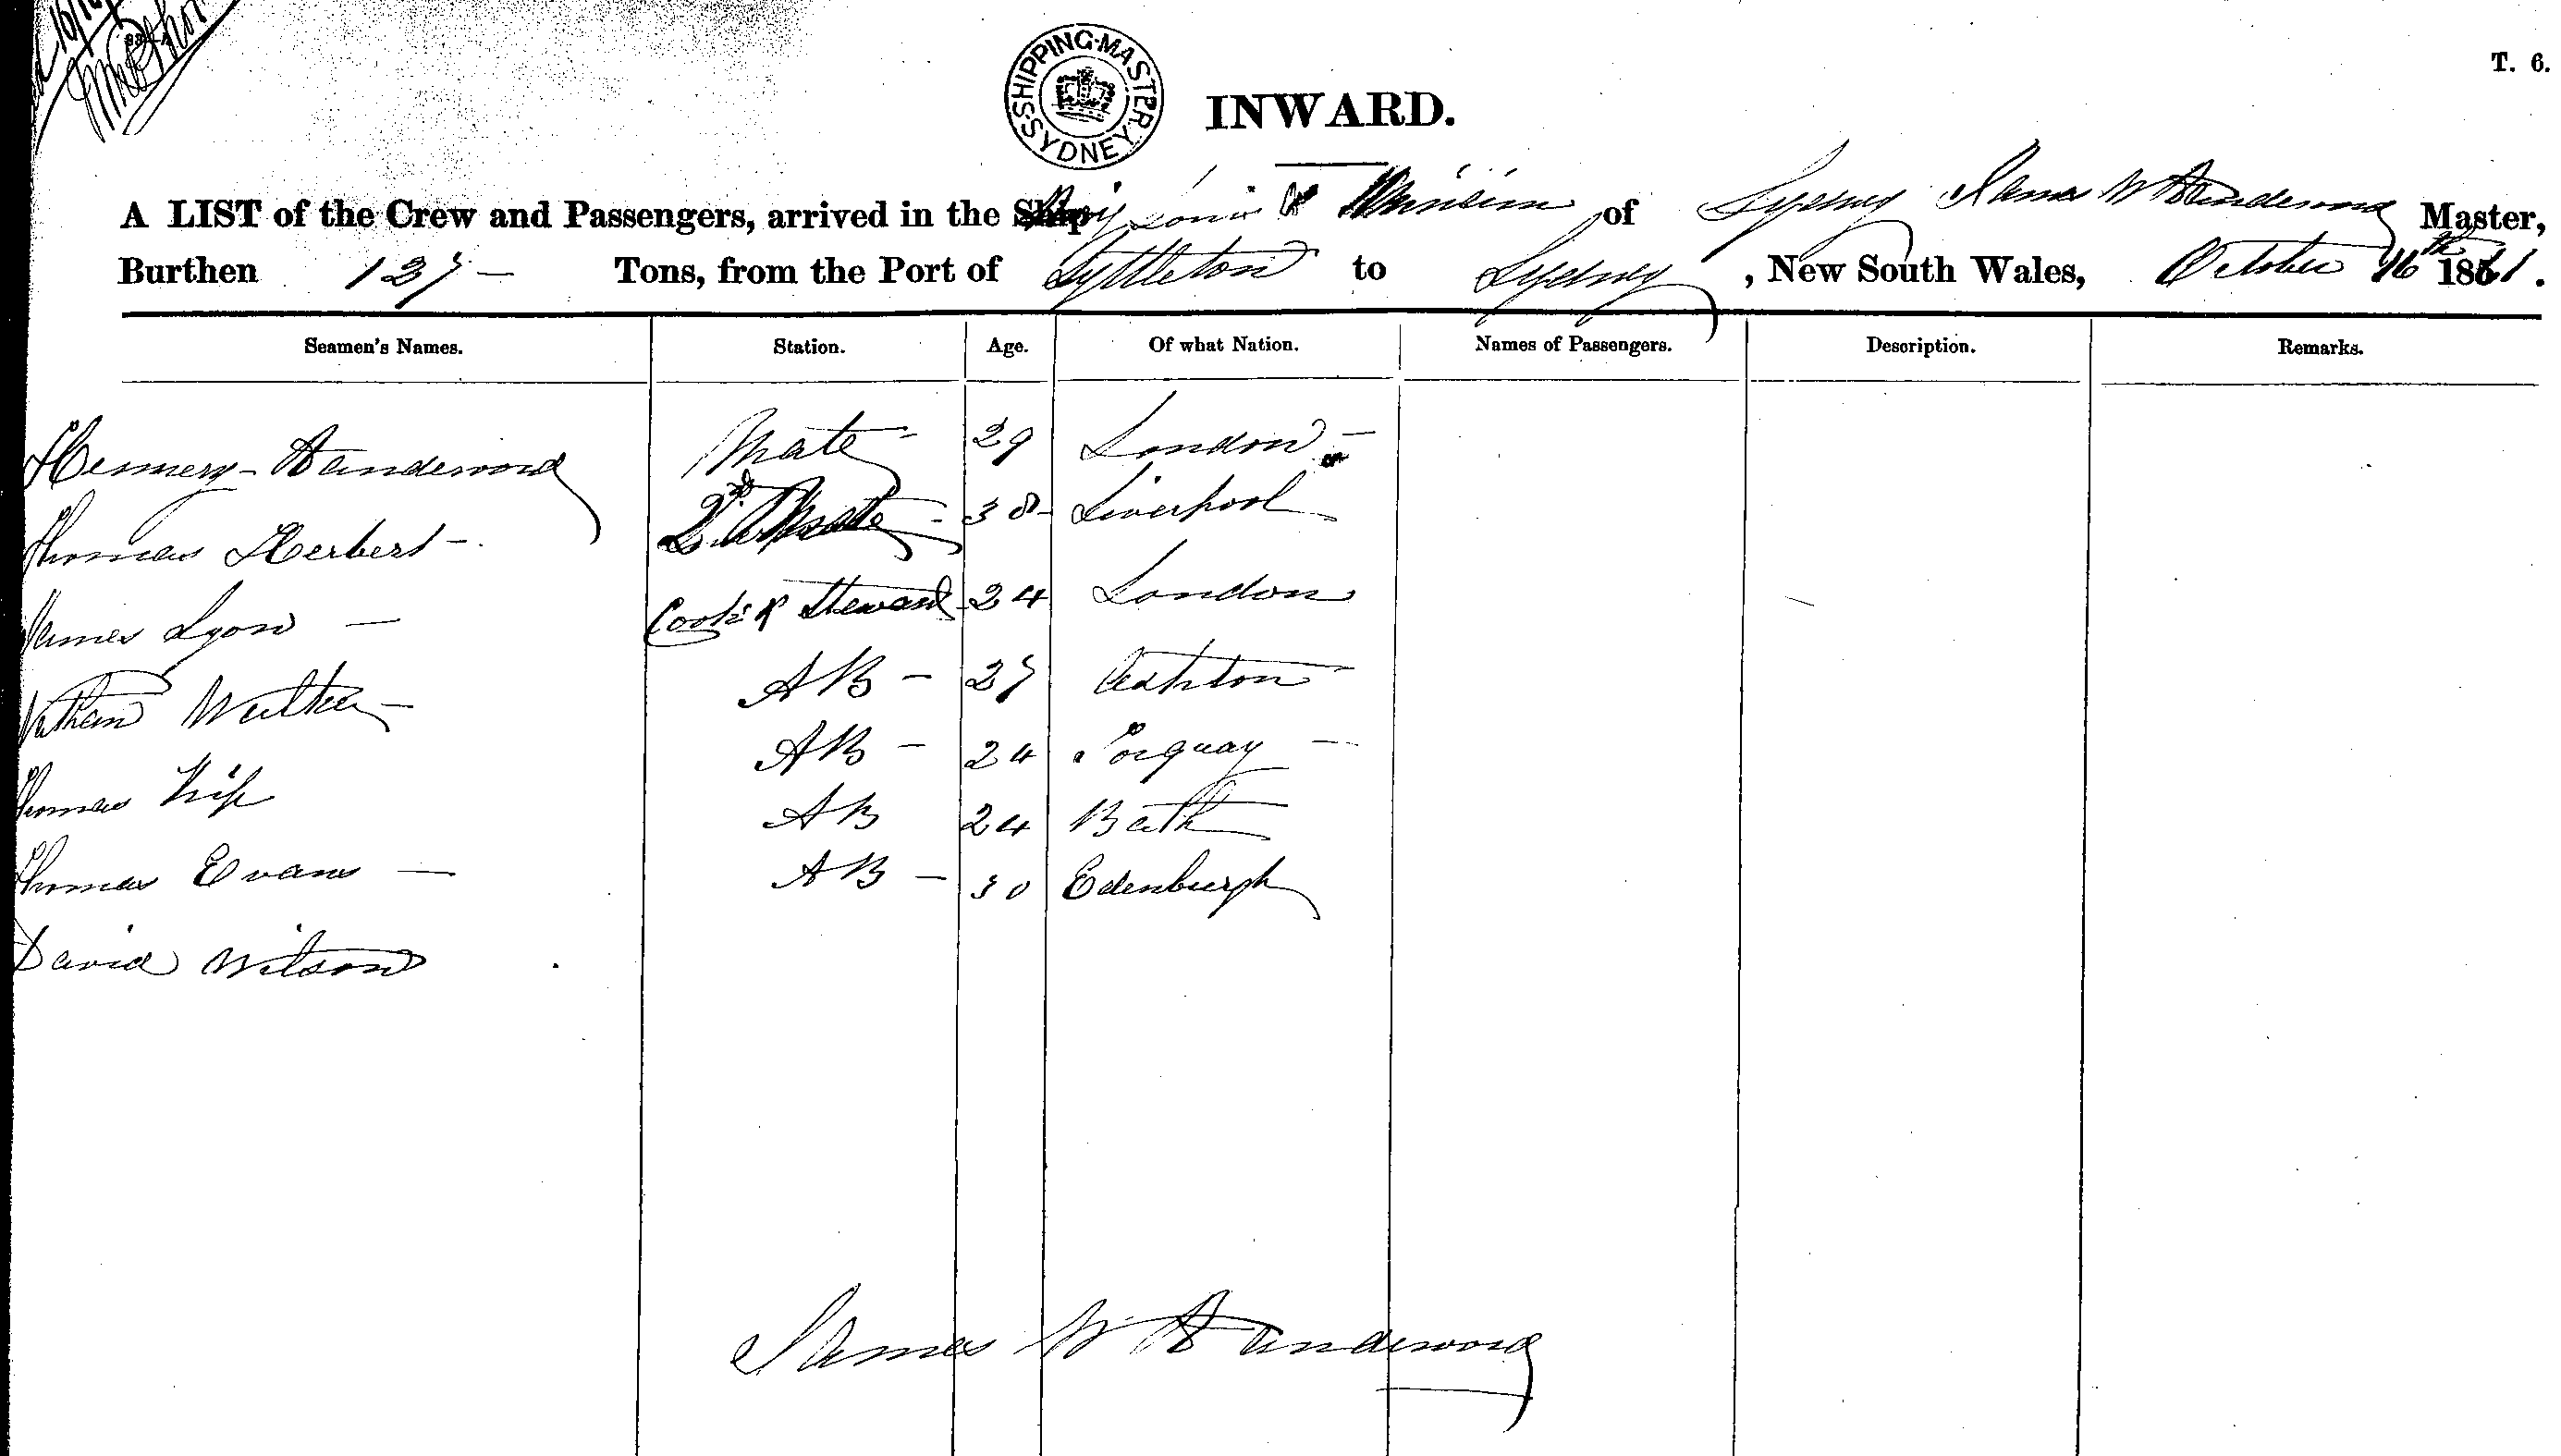 SHIPPING MASTER SYDNEY
T. 6.
INWARD.
A LIST of the Crew and Passengers, arrived in the Ship of Sydney James W Master,
Burthen 127 - Tons, from the Port of Lyttleton to Sydney, New South Wales, October 16th 1861.
Seamen's Names. Station. Age. Of what Nation. Names of Passengers. Description. Remarks.
Mate - 29 London -
Thomas Herbert - 2nd Mate - 38 - Liverpool
James Lyon - Cook & Steward 24 London
Nathan AB - 27 Ashton
Thomas AB - 24 Torquay -
Thomas Evans - AB 24 Bath
David Wilson AB - 30 Edenburgh
James W